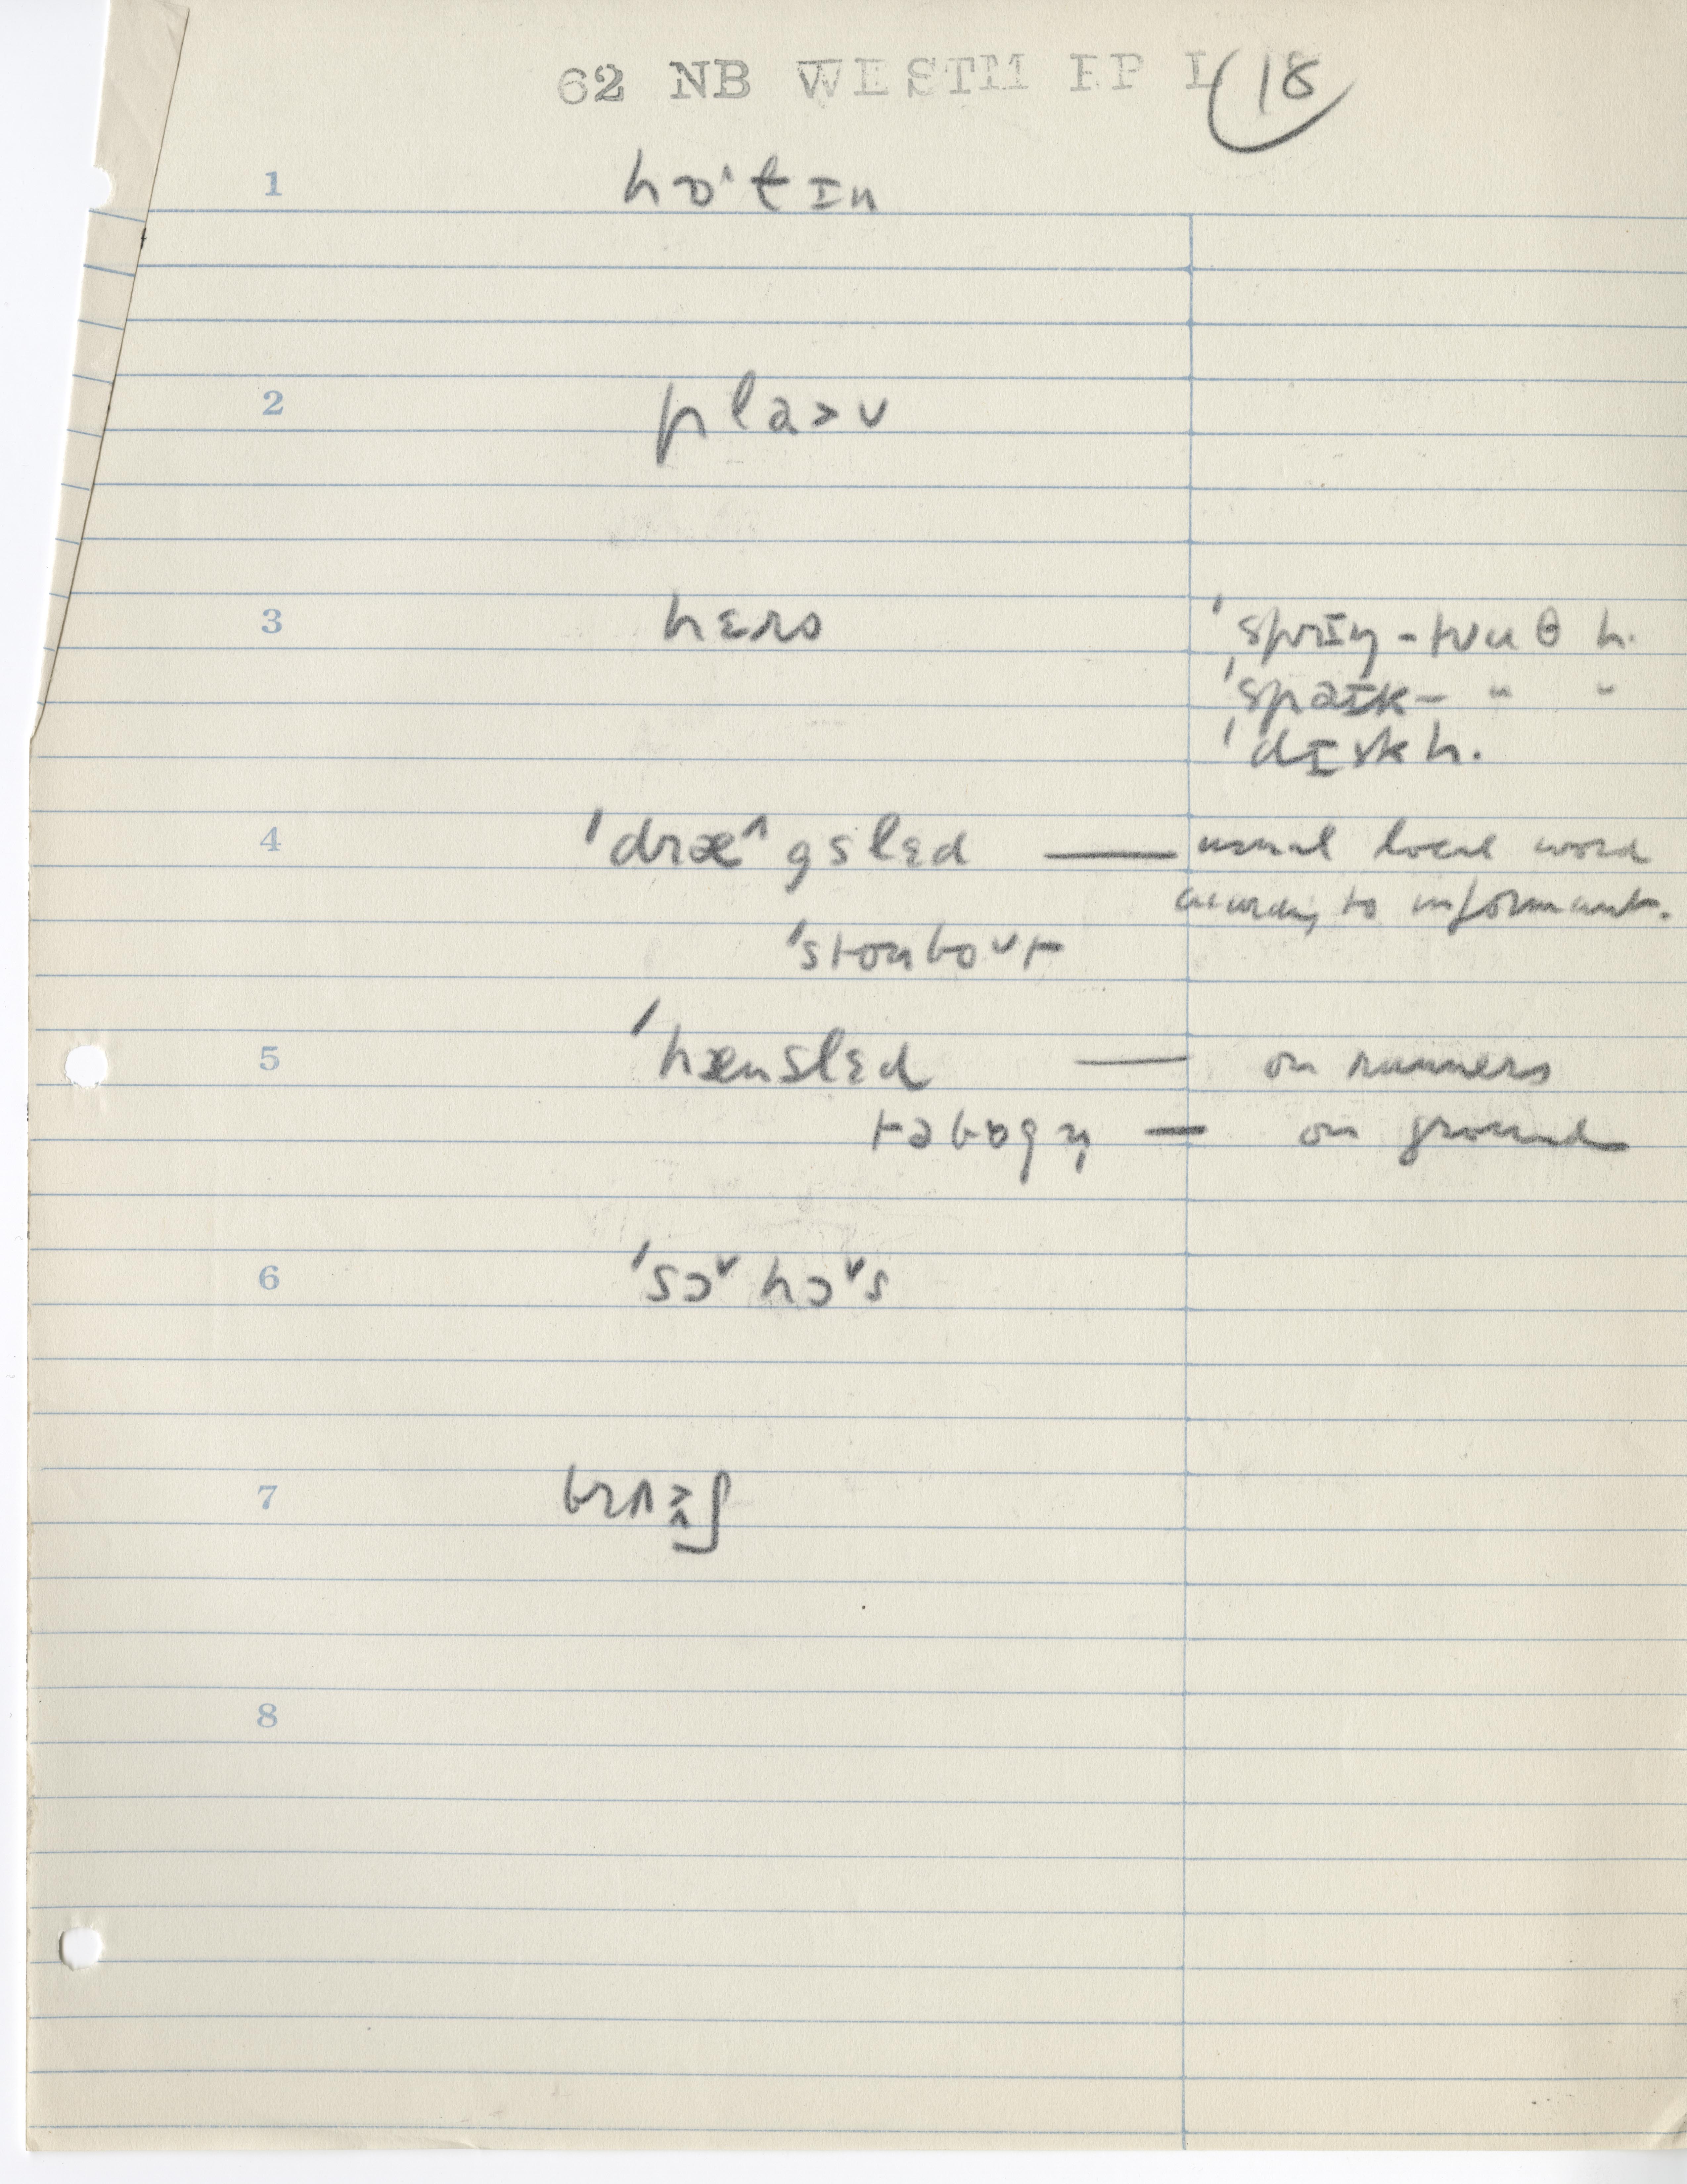 62 NB WESTM RP L 18
1 hɒ˄t̬ ɪn
2 pla>ʊ
3 hɛrə 'sprɪŋ-tuθ h.
'spaɪk- " "
'dɪsk h.
4 'dræ^gslɛd — usual local word
according to informant.
'stonboʊt
5 'hænslɛd — on runners
təbɒgn̩ — on ground
6 'sɔ˅hɔ˅s
7
8